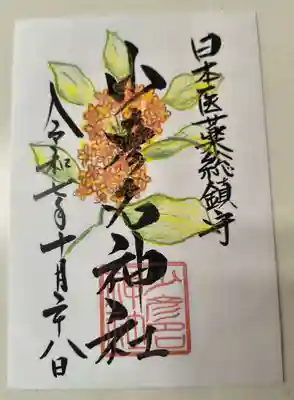 日本医薬総鎮守
少彦名神社
令和七年十月廿八日
少彦名
神社